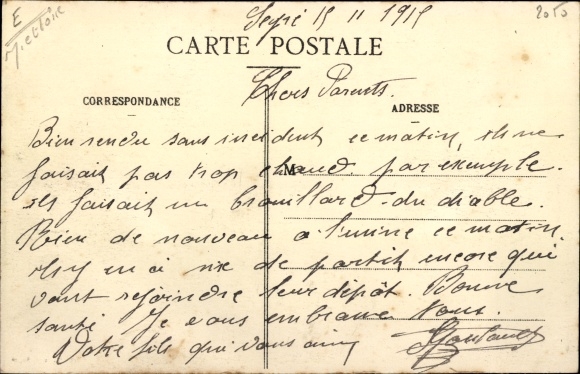 E
Segré 15 11 1915
2050
CARTE POSTALE
Chers Parents.
CORRESPONDANCE
ADRESSE
Bien rendu sans incident ce matin, il ne
faisait pas trop chaud par exemple.
M
il faisait un brouillard du diable.
Rien de nouveau a l'usine ce matin
il y en a de partit encore qui
vont rejoindre leur dépôt. Bonne
santé Je vous embrasse tous.
Votre fils qui vous aime